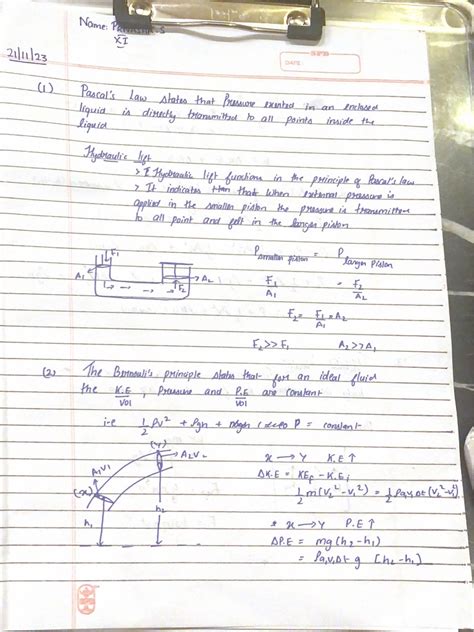 Name:
XI
DATE
21/11/23
(1) Pascal's Law states that Pressure exerted in an enclosed
liquid is directly transmitted to all points inside the
liquid
Hydraulic lift
> Hydraulic lift functions in the principle of Pascal's law
> It indicates that when external pressure is
applied in the smaller piston the pressure is transmitted
to all point and felt in the larger piston
F₁
A₁
A₂
F₂
P smaller piston = P larger piston
F₁/A₁ = F₂/A₂
F₂ = F₁/A₁ × A₂
F₂>>F₁ A₂>>A₁
(2) The principle states that for an ideal fluid
the K.E/Vol, Pressure and P.E/Vol are constant
i.e 1/2 ρv² + ρgh + P = constant
(Y)
A₂V₂
A₁V₁
(x)
h₁
h₂
x → Y K.E↑
ΔK.E = KEf - K.Ei
1/2 m(V₂² - V₁²) = 1/2 ρa₁v₁Δt (V₂² - V₁²)
x → Y P.E↑
ΔP.E = mg(h₂-h₁)
= ρa₁v₁Δt g [h₂-h₁)